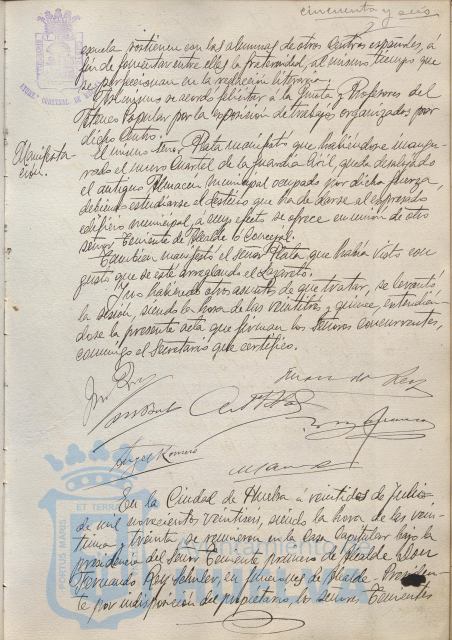 cincuenta y seis
escuela sostienen con las alumnas de otros Centros españoles, á
fin de fomentar entre ellas la fraternidad, al mismo tiempo que
se perfeccionan en la redacción literaria.
se acordó felicitar á la Junta y Profesores del
Ateneo Popular por la exposición de trabajos organizados por
dicho Centro.
Manifesta-
ción.
El mismo señor Plata manifestó que habiéndose inaugu-
rado el nuevo Cuartel de la Guardia Civil, queda desalojado
el antiguo Almacén municipal ocupado por dicha fuerza,
debiendo estudiarse el destino que ha de darse al expresado
edificio municipal, á cuyo efecto se ofrece en unión de otro
señor Teniente de Alcalde ó Concejal.
También manifestó el señor Plata, que había visto con
gusto que se esté arreglando el Lazareto.
Y no habiendo otros asuntos de que tratar, se levantó
la sesión, siendo la hora de las veintitres y quince, extendién-
dose la presente acta que firman los señores concurrentes,
conmigo el Secretario que certifico.
Angel Romero
En la Ciudad de Huelva á veintidos de Julio
de mil novecientos veintiseis, siendo la hora de las vein-
tiuna treinta, se reunieron en la Casa Capitular bajo la
presidencia del señor Teniente primero de Alcalde Don
Fernando Rey Schuler, en funciones de Alcalde-Presiden-
te por indisposición del propietario, los señores Tenientes
PORTUS MARIS ET TERRAE
Ayuntamiento de